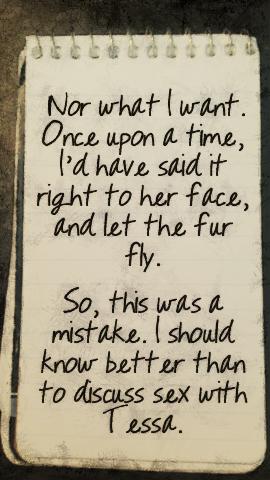 Nor what I want.
Once upon a time,
I'd have said it
right to her face,
and let the fur
fly.
So, this was a
mistake. I should
know better than
to discuss sex with
Tessa.